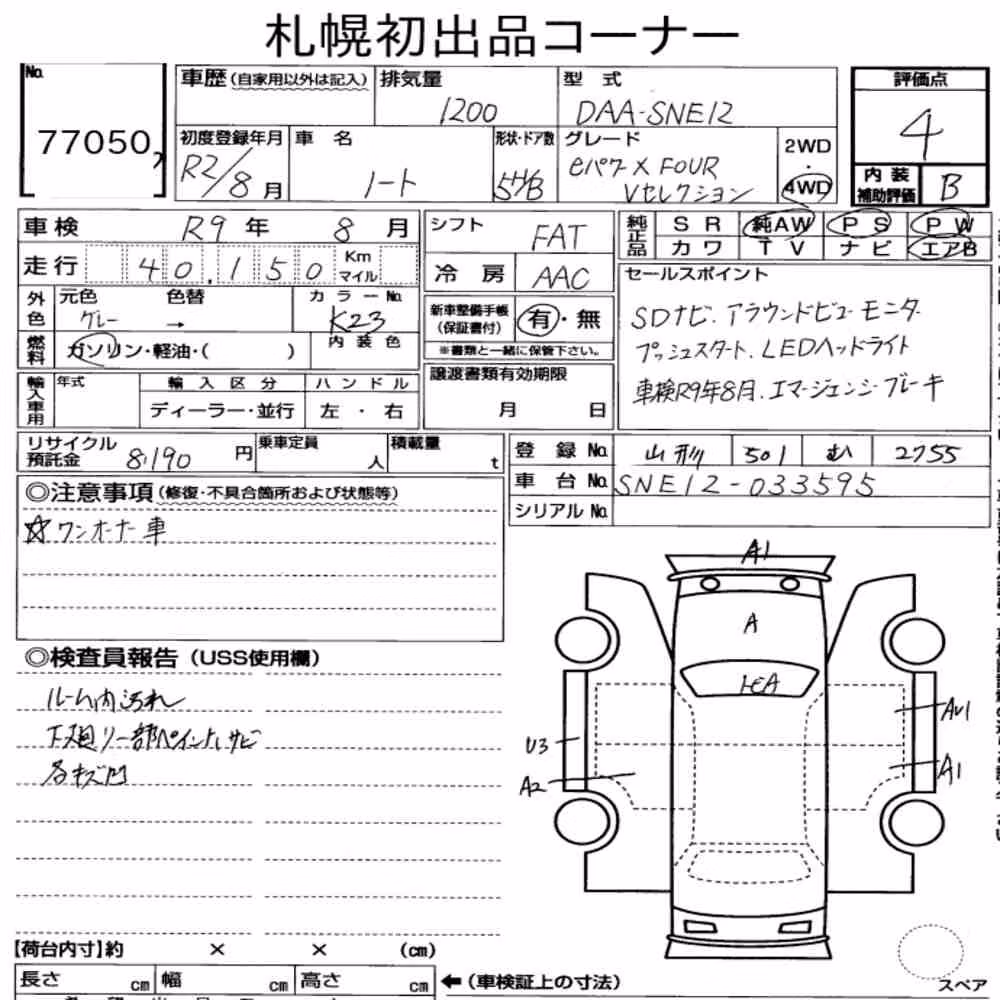 札幌初出品コーナー
No.
77050
車歴(自家用以外は記入)
排気量
1200
型 式
DAA-SNE12
評価点
4
初度登録年月
R2/8月
車 名
ノート
形状・ドア数
5H/B
グレード
eパワーX FOUR
Vセレクション
2WD
・
4WD
内装
補助評価
B
車検 R9年 8月
シフト
FAT
純正品
SR 純AW PS PW
カワ TV ナビ エアB
走行 40,150 Km
マイル
冷房
AAC
セールスポイント
SDナビ.アラウンドビューモニター
プッシュスタート.LEDヘッドライト
車検R9年8月.エマージェンシーブレーキ
外色
元色
グレー
色替
→
カラーNo.
K23
新車整備手帳
(保証書付)
有・無
※書類と一緒に保管下さい。
燃料
ガソリン・軽油・( )
内装色
譲渡書類有効期限
月 日
輸入車用
年式
輸入区分
ディーラー・並行
ハンドル
左・右
リサイクル
預託金
8,190円
乗車定員
人
積載量
t
登録No.
山形 501 む 2755
車台No.
SNE12-033595
シリアルNo.
◎注意事項(修復・不具合箇所および状態等)
☆ワンオーナー車
◎検査員報告(USS使用欄)
ルーム内汚れ
下廻り一部ペイント,サビ
各キズ凹
A1
A
トビA
AU1
A1
U3
A2
【荷台内寸】約 × × (cm)
長さ cm
幅 cm
高さ cm
←(車検証上の寸法)
スペア